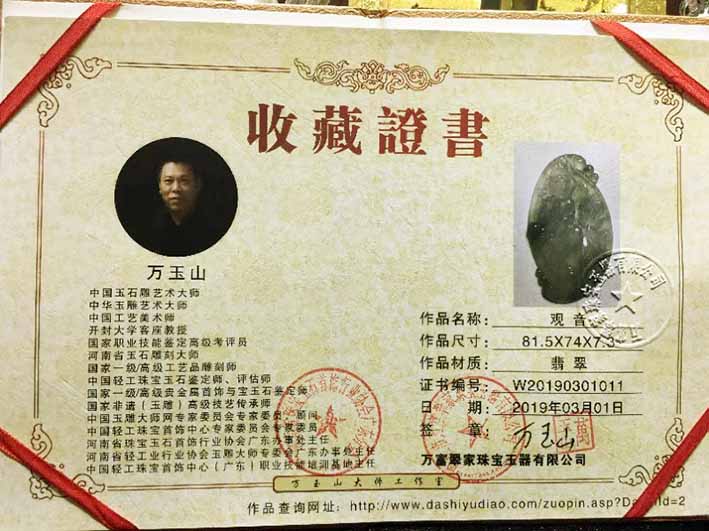 收藏證書
万玉山
中国玉石雕艺术大师
中华玉雕艺术大师
中国工艺美术师
开封大学客座教授
国家职业技能鉴定高级考评员
河南省玉石雕刻大师
国家一级/高级工艺品雕刻师
中国轻工珠宝玉石鉴定师、评估师
国家一级/高级贵金属首饰与宝玉石鉴定师
国家非遗(玉雕)高级技艺传承师
中国玉雕大师网专家委员会专家委员、顾问
中国轻工珠宝首饰中心专家委员会专家委员
河南省珠宝玉石首饰行业协会广东办事处主任
河南省轻工业行业协会玉雕大师专委会广东办事处主任
中国轻工珠宝首饰中心(广东)职业技能培训基地主任
作品名称: 观音
作品尺寸: 81.5X74X7.3
作品材质: 翡翠
证书编号: W20190301011
日期: 2019年03月01日
签章: 万玉山
万富翠家珠宝玉器有限公司
万玉山大师工作室
作品查询网址: http://www.dashiyudiao.com/zuopin.asp?DaShiId=2